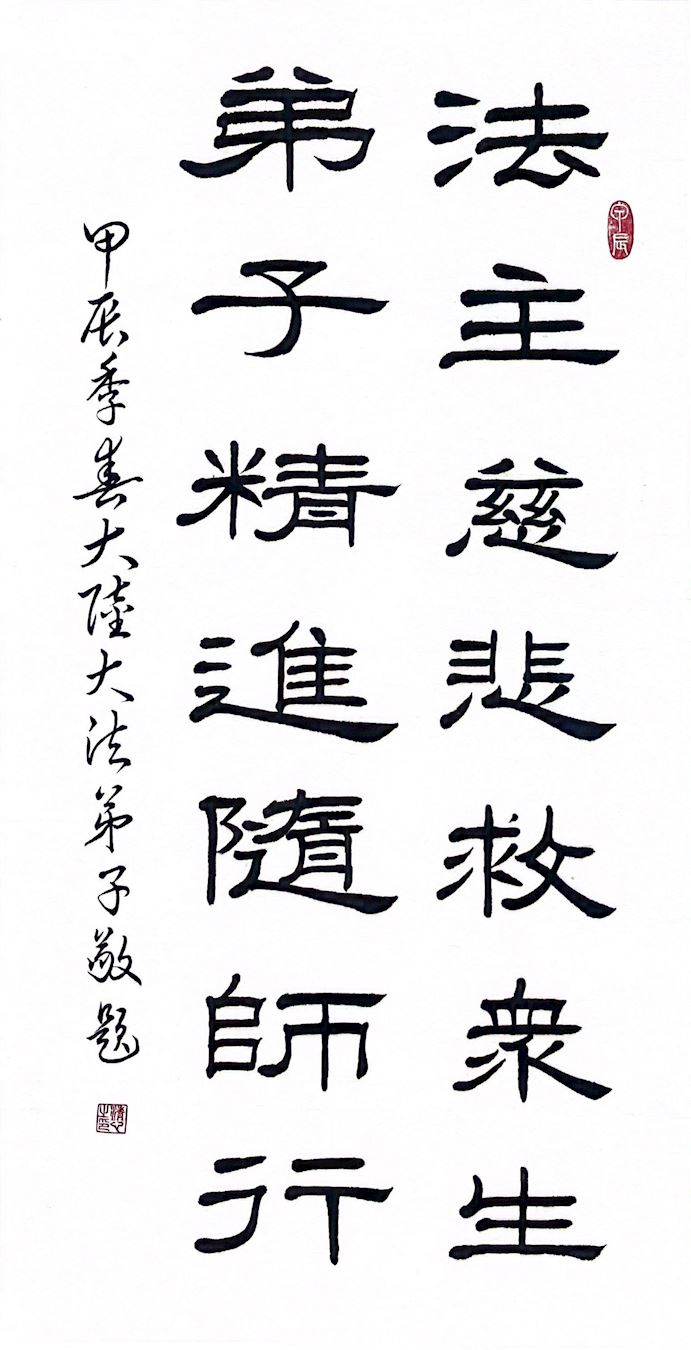 法主慈悲救衆生
甲辰
弟子精進隨師行
甲辰季春大陸大法弟子敬題